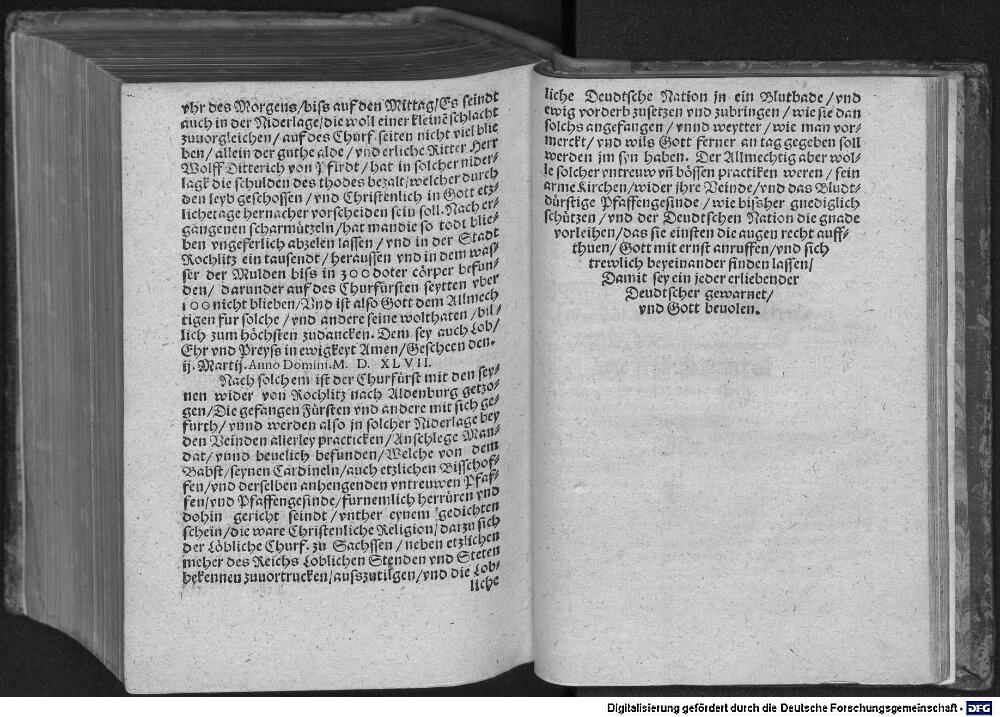 vhr des Morgens/biſs auf den Mittag/Es ſeindt
auch in der Niderlage/die woll einer kleinẽ ſchlacht
zuuorgleichen/auf des Churf. ſeiten nicht viel blie
ben/allein der guthe alde/vnd erliche Ritter Herr
Wolff Ditterich von Pfirdt/hat in ſolcher nider-
lagk die ſchulden des thodes bezalt/welcher durch
den leyb geſchoſſen/vnd Chriſtenlich in Gott etz-
liche tage hernacher vorſcheiden ſein ſoll. Nach er-
gangenen ſcharmützeln/hat man die ſo todt blie-
ben vngeferlich abzelen laſſen/vnd in der Stadt
Rochlitz ein tauſendt/herauſſen vnd in dem waſ-
ſer der Mulden biſs in 300 doter cörper befun-
den/darunder auf des Churfürſten ſeytten vber
100 nicht blieben/Vnd iſt alſo Gott dem Allmech
tigen fur ſolche/vnd andere ſeine wolthaten/bil-
lich zum höchſten zudancken. Dem ſey auch Lob/
Ehr vnd Preyſs in ewigkeyt Amen/Geſcheen den.
ij. Martij. Anno Domini. M. D. XLVII.
Nach ſolchem iſt der Churfürſt mit den ſey-
nen wider von Rochlitz nach Aldenburg getzo-
gen/Die gefangen Fürſten vnd andere mit ſich ge-
furth/vnnd werden alſo in ſolcher Niderlage bey
den Veinden allerley practicken/Anſchlege Man-
dat/vnnd beuelich befunden/Welche von dem
Babſt/ſeynen Cardineln/auch etzlichen Biſſchof-
fen/vnd derſelben anhengenden vntreuwen Pfaf-
fen/vnd Pfaffengeſinde/furnemlich herrüren vnd
dohin gericht ſeindt/vnther eynem gedichten
ſchein/die ware Chriſtenliche Religion/darzu ſich
der Löbliche Churf. zu Sachſſen/neben etzlichen
meher des Reichs Loblichen Stenden vnd Steten
bekennen zuuortrucken/auſszutilgen/vnd die Lob-
liche
liche Deudtſche Nation jn ein Blutbade/vnd
ewig vorderb zuſetzen vnd zubringen/wie ſie dan
ſolchs angefangen/vnnd weytter/wie man vor-
merckt/vnd wils Gott ferner an tag gegeben ſoll
werden jm ſyn haben. Der Allmechtig aber wol-
le ſolcher vntreuw vñ böſſen practiken weren/ſein
arme Kirchen/wider jhre Veinde/vnd das Bludt-
dürſtige Pfaffengeſinde/wie biſsher gnediglich
ſchützen/vnd der Deudtſchen Nation die gnade
vorleihen/das ſie einſten die augen recht auff-
thuen/Gott mit ernſt anruffen/vnd ſich
trewlich beyeinander finden laſſen/
Damit ſey ein jeder erliebender
Deudtſcher gewarnet/
vnd Gott beuolen.
Digitalisierung gefördert durch die Deutsche Forschungsgemeinschaft - DFG